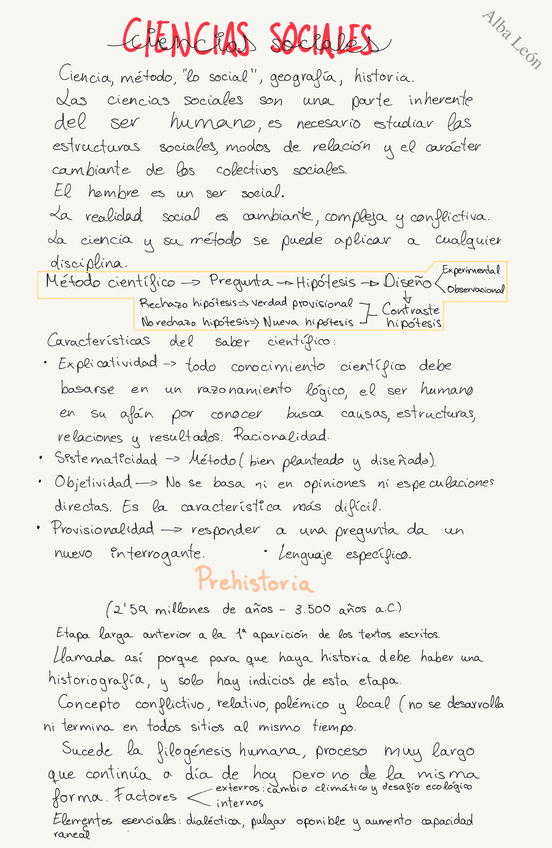 CIENCIAS SOCIALES
ciencias sociales
Alba León
Ciencia, método, "lo social", geografía, historia.
Las ciencias sociales son una parte inherente
del ser humano, es necesario estudiar las
estructuras sociales, modos de relación y el carácter
cambiante de los colectivos sociales.
El hombre es un ser social.
La realidad social es cambiante, compleja y conflictiva.
La ciencia y su método se puede aplicar a cualquier
disciplina.
Método científico → Pregunta → Hipótesis → Diseño
Experimental
Observacional
Rechazo hipótesis ⇒ verdad provisional
No rechazo hipótesis ⇒ Nueva hipótesis
Contraste
hipótesis
Características del saber científico:
• Explicatividad → todo conocimiento científico debe
basarse en un razonamiento lógico, el ser humano
en su afán por conocer busca causas, estructuras,
relaciones y resultados. Racionalidad.
• Sistematicidad → Método (bien planteado y diseñado).
• Objetividad → No se basa ni en opiniones ni especulaciones
directas. Es la característica más difícil.
• Provisionalidad → responder a una pregunta da un
nuevo interrogante. • Lenguaje específico.
Prehistoria
(2'59 millones de años - 3.500 años a.C)
Etapa larga anterior a la 1ª aparición de los textos escritos.
Llamada así porque para que haya historia debe haber una
historiografía, y solo hay indicios de esta etapa.
Concepto conflictivo, relativo, polémico y local (no se desarrolla
ni termina en todos sitios al mismo tiempo.
Sucede la filogénesis humana, proceso muy largo
que continúa a día de hoy pero no de la misma
forma. Factores
externos: cambio climático y desafío ecológico
internos
Elementos esenciales: dialéctica, pulgar oponible y aumento capacidad
raneal